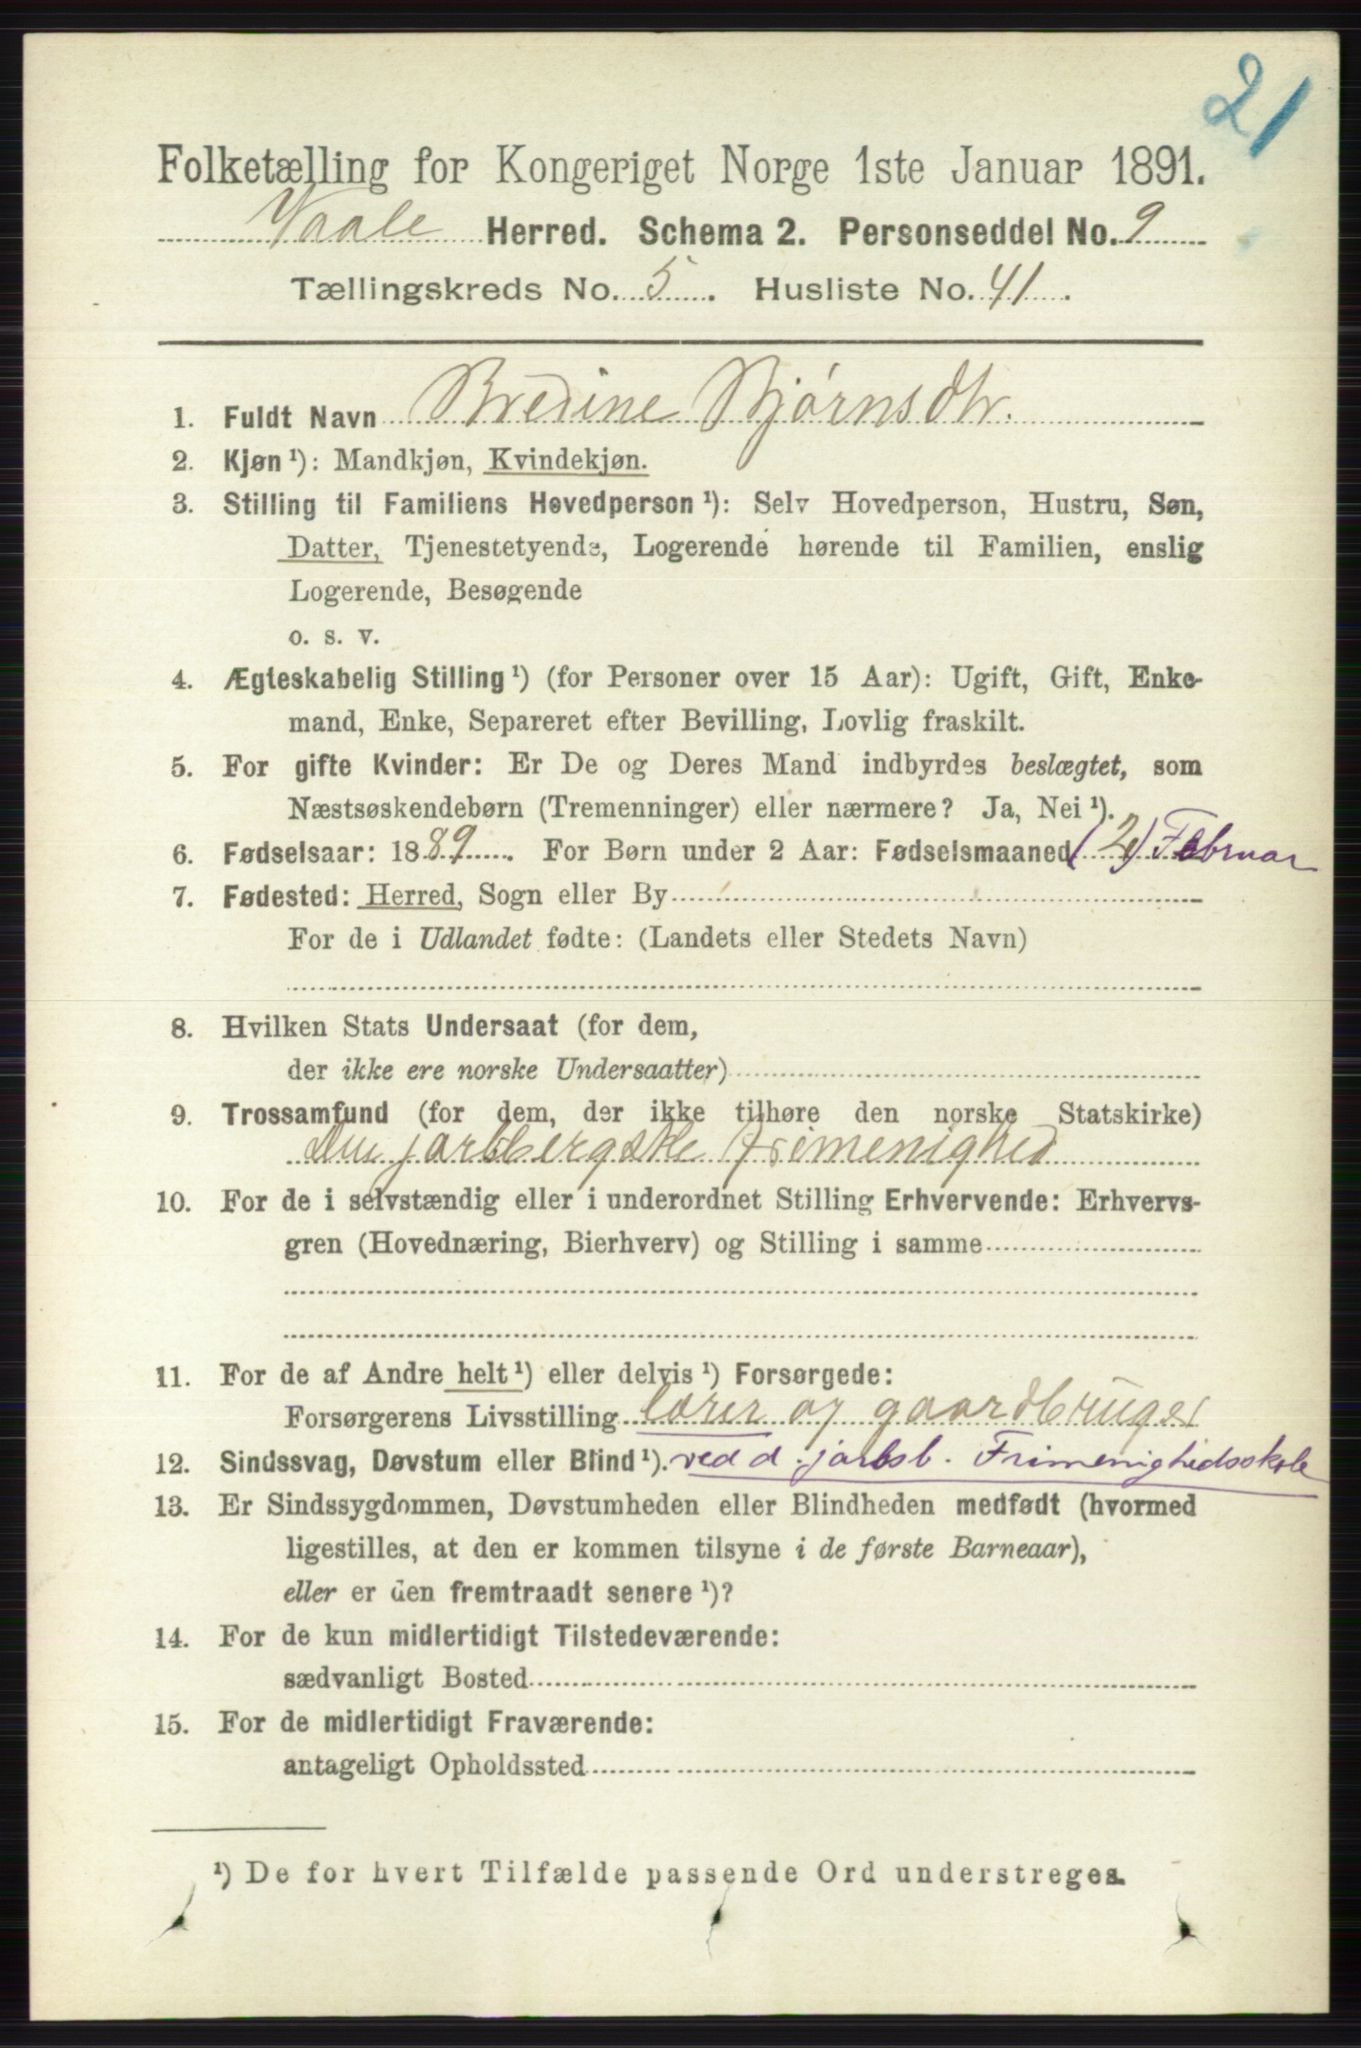 21
Folketælling for Kongeriget Norge 1ste Januar 1891.
Vaale Herred. Schema 2. Personseddel No. 9
Tællingskreds No. 5. Husliste No. 41.
1. Fuldt Navn Bredine Bjørnsdtr.
2. Kjøn ¹): Mandkjøn, Kvindekjøn.
3. Stilling til Familiens Hovedperson ¹): Selv Hovedperson, Hustru, Søn,
Datter, Tjenestetyende, Logerende hørende til Familien, enslig
Logerende, Besøgende
o. s. v.
4. Ægteskabelig Stilling ¹) (for Personer over 15 Aar): Ugift, Gift, Enke-
mand, Enke, Separeret efter Bevilling, Lovlig fraskilt.
5. For gifte Kvinder: Er De og Deres Mand indbyrdes beslægtet, som
Næstsøskendebørn (Tremenninger) eller nærmere? Ja, Nei ¹).
6. Fødselsaar: 1889. For Børn under 2 Aar: Fødselsmaaned (2) Februar
7. Fødested: Herred, Sogn eller By
For de i Udlandet fødte: (Landets eller Stedets Navn)
8. Hvilken Stats Undersaat (for dem,
der ikke ere norske Undersaatter)
9. Trossamfund (for dem, der ikke tilhøre den norske Statskirke)
Den jarlsbergske Frimenighed
10. For de i selvstændig eller i underordnet Stilling Erhvervende: Erhvervs-
gren (Hovednæring, Bierhverv) og Stilling i samme
11. For de af Andre helt ¹) eller delvis ¹) Forsørgede:
Forsørgerens Livsstilling lærer og gaardbruger
12. Sindssvag, Døvstum eller Blind ¹). ved d. jarlsb. Frimenighedsskole
13. Er Sindssygdommen, Døvstumheden eller Blindheden medfødt (hvormed
ligestilles, at den er kommen tilsyne i de første Barneaar),
eller er den fremtraadt senere ¹)?
14. For de kun midlertidigt Tilstedeværende:
sædvanligt Bosted
15. For de midlertidigt Fraværende:
antageligt Opholdssted
¹) De for hvert Tilfælde passende Ord understreges.